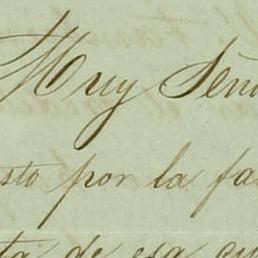 Muy Señ
sto por la fa
ta de esa